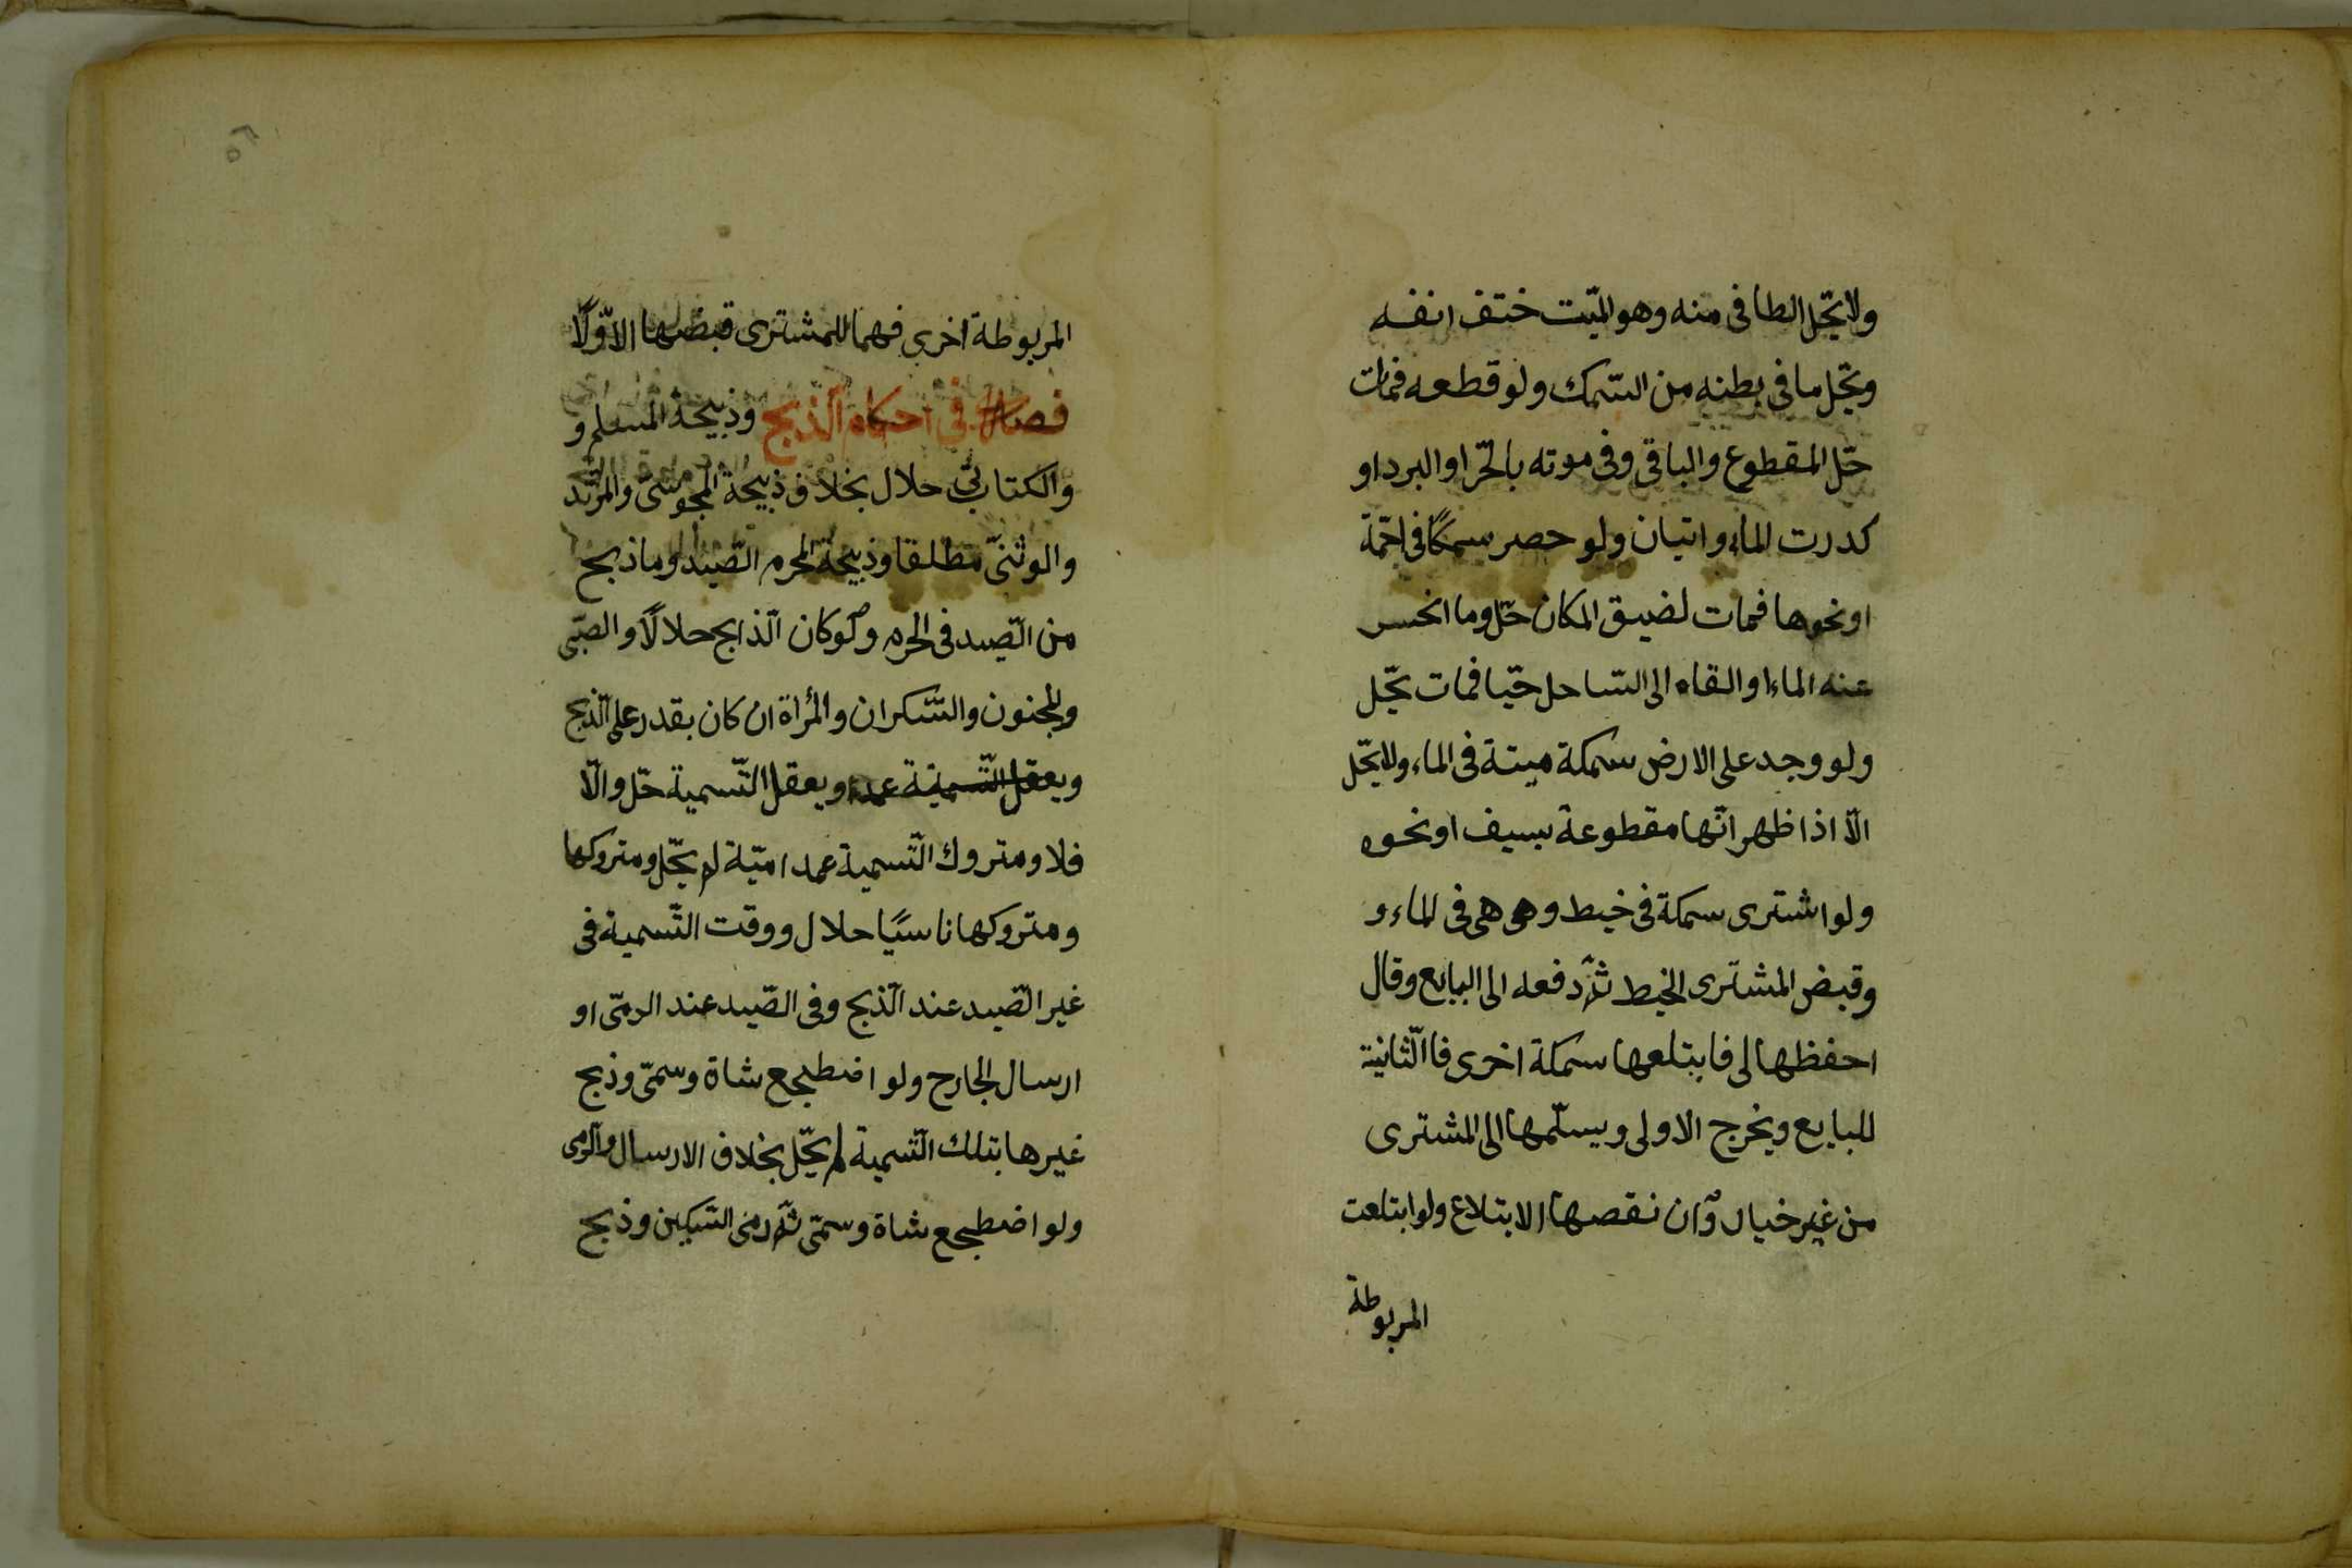 ولا يحّل الطافى منه وهو الميّت ختف انفه
ويحّل ما فى بطنه من السّمك ولو قطعه فمات
حّل المقطوع والباقى وفى موته بالحّر او البرد او
كدرت الماء روايتان ولو حصر سمكًا فى اجمّة
او نحوها فمات لضيق المكان حّل وما انحسر
عنه الماء او القاه الى السّاحل حيّا فمات يحّل
ولو وجد على الارض سمكة ميتة فى الماء ولا يحّل
الّا اذا ظهر انّها مقطوعة بسيف او نحوه
ولو اشترى سمكة فى خيط وهى هى فى الماء و
وقبض المشترى الخيط ثمّ دفعه الى البايع وقال
احفظها لى فابتلعها سمكة اخرى فاالّثانية
للبايع ويخرج الاولى ويسلّمها الى المشترى
من غير خيار وٓان نقصها الابتلاع ولو ابتلعت
المربوطة
٥٢
المربوطة اخرى فهما للمشترى قبضها الاّولًا
فصل فى احكام الّذبح وذبيحة المسلم و
والكتابّى حلال بخلاف ذبيحة المجوسّى والمرتّد
والوثنىّ مطلقا وذبيحة المحرم الصّيد وما ذبح
من الصّيد فى الحرم ولو كان الّذابح حلالًا والصبّى
والمجنون والسّكران والمرأة ان كان يقدر على الّذبح
ويعقل التّسمية عمدا ويعقل التّسمية حّل والّا
فلا ومتروك التّسمية عمدا ميّتة لم يحّل ومتروكها
ومتروكها ناسيًا حلال ووقت التّسمية فى
غير الصّيد عند الّذبح وفى الصّيد عند الرمّى او
ارسال الجارح ولو اضطجع شاة وسمّى وذبح
غيرها بتلك التّسمية لم يحّل بخلاف الارسال والرمى
ولو اضطجع شاة وسمّى ثمّ رمى السّكين وذبح